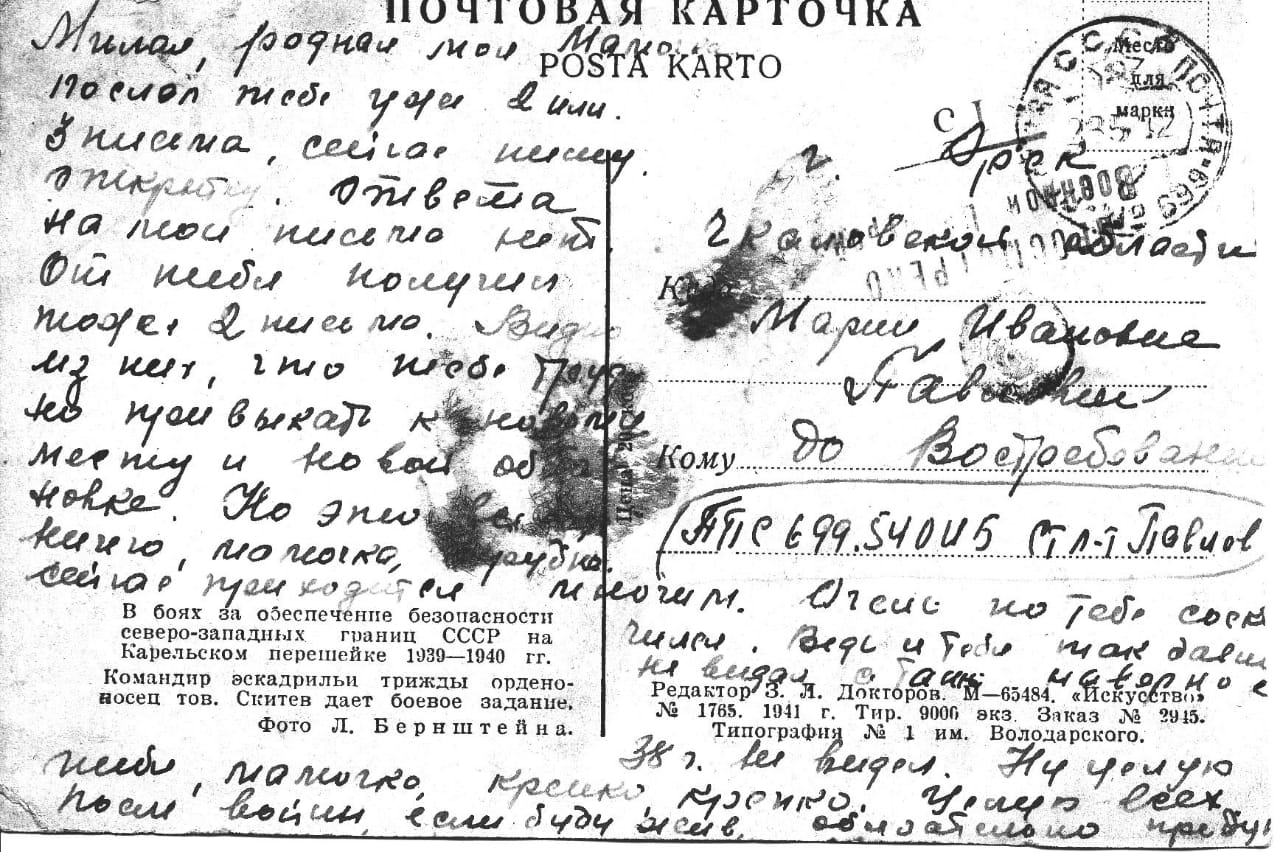 ПОЧТОВАЯ КАРТОЧКА
POSTA KARTO
Милая, родная моя Мамочка
Послал тебе уже 2 или
3 письма, сейчас пишу
открытку. Ответа
на мои письма нет.
От тебя получил
тоже 2 письма. Видно
из них, что тебе труд
но привыкать к новому
месту и новой обста
новке. Но это
ничего, мамочка,
сейчас приходится многим. Очень по тебе соск
чился. Ведь и тебя так давно
не видал, а Таню наверное с
38 г. не видел. Ну целую
тебя, мамочка, крепко, крепко. Целую всех
После войны, если буду жив, обязательно приеду
Место
для
марки
ПОЧТА
г. Орск
Чкаловской области
Куда
Марии Ивановне
Павловой
Кому
До Востребования
ППС 699. 540 ИБ Ст л-т Павлов
В боях за обеспечение безопасности
северо-западных границ СССР на
Карельском перешейке 1939—1940 гг.
Командир эскадрильи трижды ордено-
носец тов. Скитев дает боевое задание.
Фото Л. Бернштейна.
Редактор З. Л. Докторов. М—65484. «Искусство»
№ 1765. 1941 г. Тир. 9000 экз. Заказ № 2945.
Типография № 1 им. Володарского.